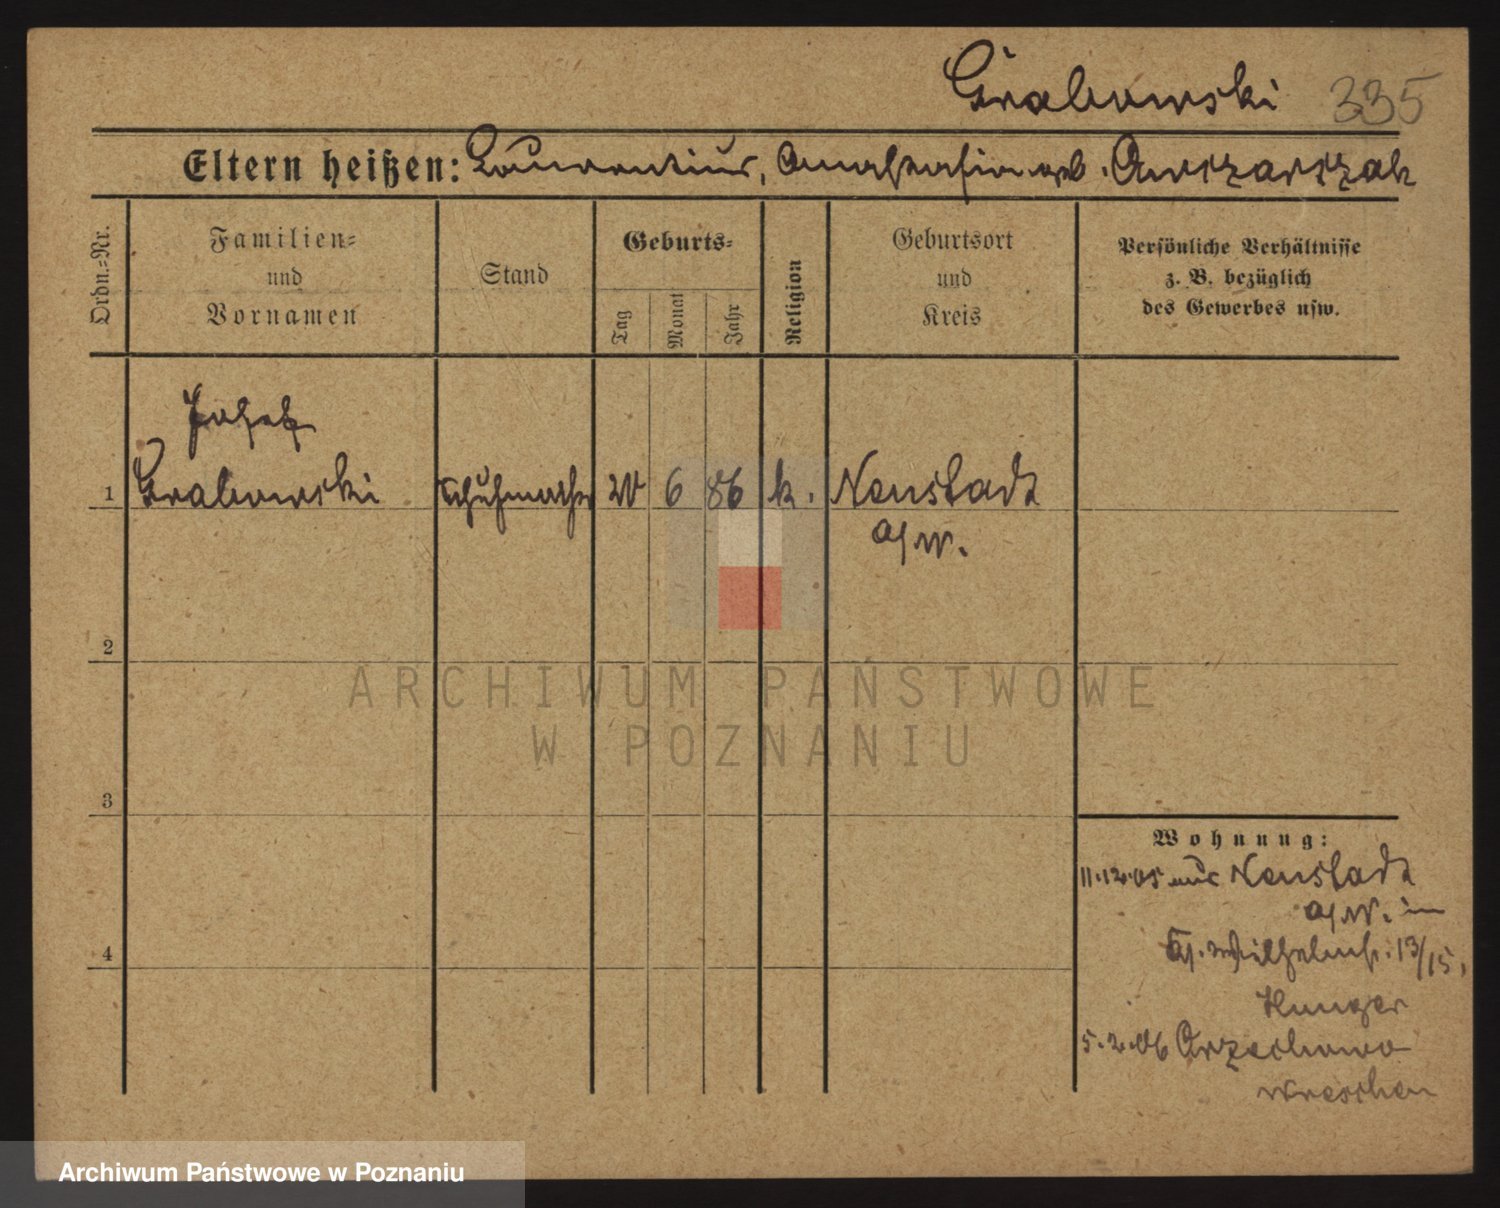 Grabowski 335
Eltern heißen: Laurentius, Anastasia geb.
Ordn.-Nr.
Familien-
und
Vornamen
Stand
Geburts-
Tag
Monat
Jahr
Religion
Geburtsort
und
Kreis
Persönliche Verhältnisse
z. B. bezüglich
des Gewerbes usw.
Josef
1 Grabowski Schuhmacher 20 6 86 k. Neustadt
a/W.
2
3
4
Wohnung:
11.12.05 aus Neustadt
a/W. in
Wilhelmstr. 13/15,
Hunger
5.2.06 Orzechowo
Wreschen
ARCHIWUM PAŃSTWOWE
W POZNANIU
Archiwum Państwowe w Poznaniu